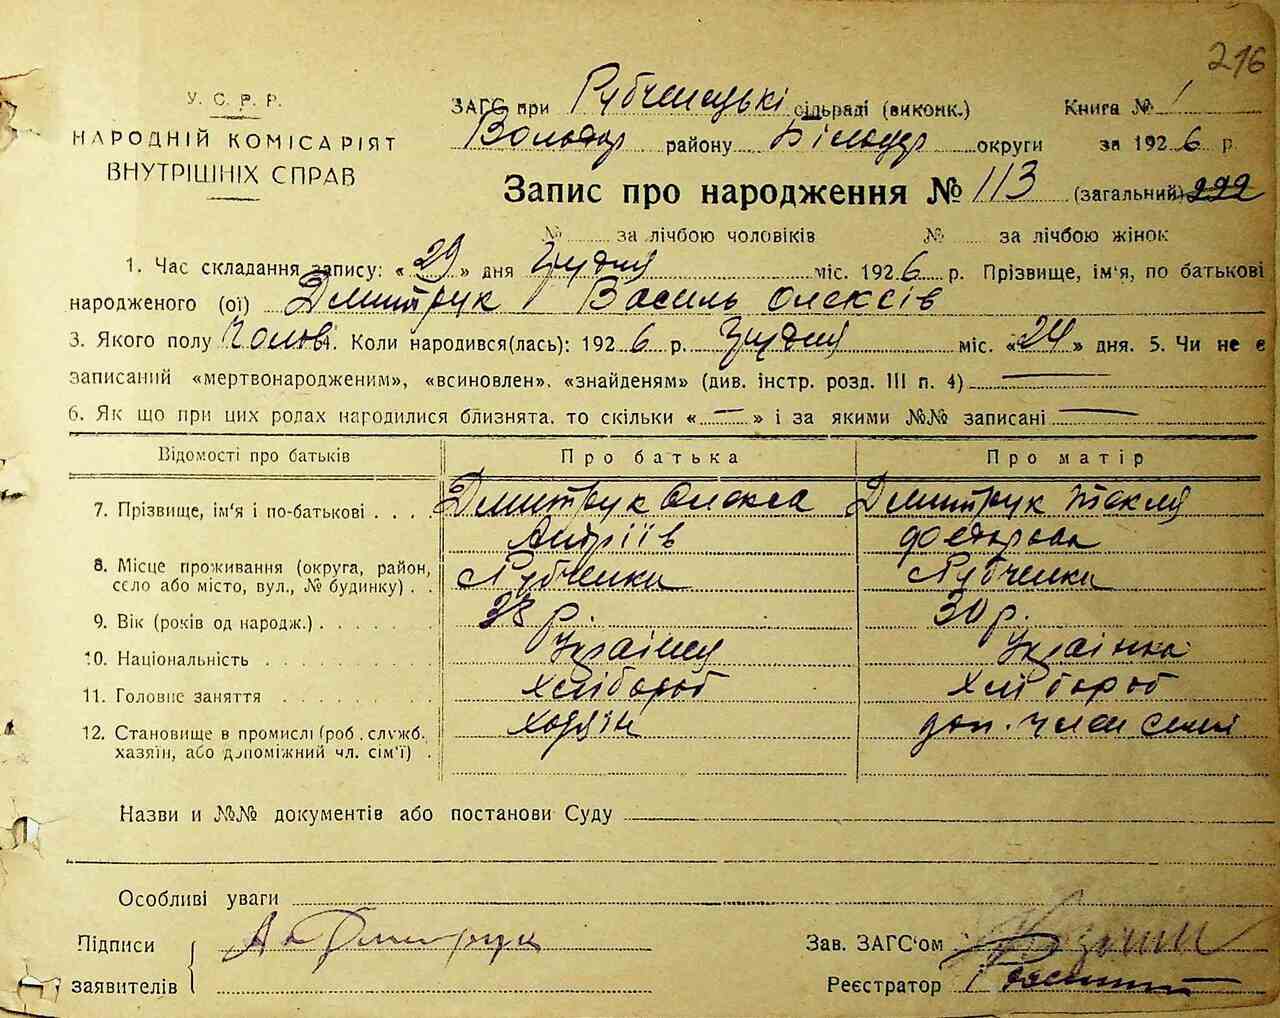 216
У. С. Р. Р.
НАРОДНІЙ КОМІСАРІЯТ
ВНУТРІШНІХ СПРАВ
ЗАГС при Рубченецькі сільраді (виконк.) Книга № 1
Володар району Білоцер округи за 1926 р.
Запис про народження № 113 (загальний) 222
№ за лічбою чоловіків № за лічбою жінок
1. Час складання запису: «29» дня Грудня міс. 1926 р. Прізвище, ім'я, по батькові
народженого (ої) Дмитрук Василь Олексів
3. Якого полу Чолові. Коли народився(лась): 1926 р. Грудня міс. «24» дня. 5. Чи не є
записаний «мертвонародженим», «всиновлен», «знайденям» (див. інстр. розд. III п. 4) —
6. Як що при цих родах народилися близнята, то скільки «—» і за якими №№ записані —
Відомості про батьків Про батька Про матір
7. Прізвище, ім'я і по-батькові . . . Дмитрук Олекса Дмитрук Текля
Андріїв Федорова
8. Місце проживання (округа, район,
село або місто, вул., № будинку) . . Рубченки Рубченки
9. Вік (років од народж.) . . . . . 38 р. 30 р.
10. Національність . . . . . . . . Українця Українка
11. Головне заняття . . . . . . . хлібороб хлібороб
12. Становище в промислі (роб. служб. хозяїн доп. член семї
хазяїн, або допоміжний чл. сім'ї) .
Назви и №№ документів або постанови Суду
Особливі уваги
Підписи Дмитрук Зав. ЗАГС'ом
заявителів Реєстратор